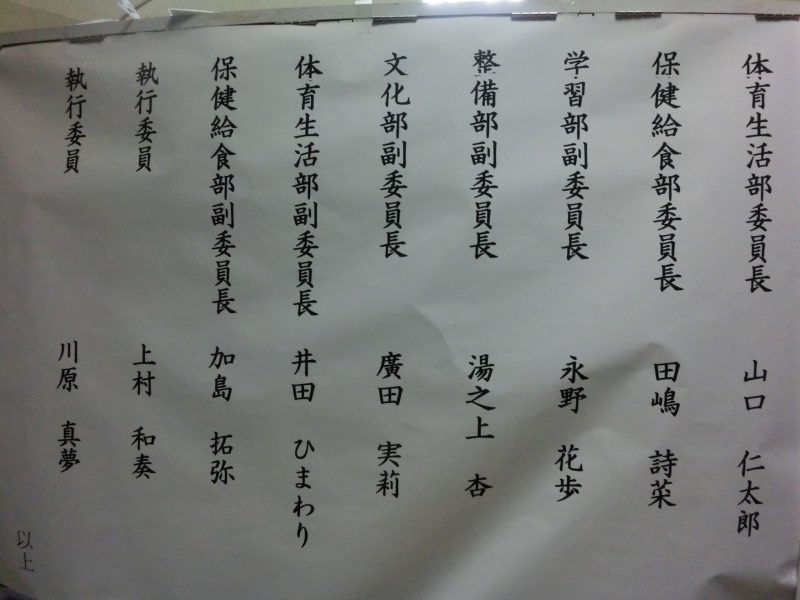 体育生活部委員長 山口 仁太郎
保健給食部委員長 田嶋 詩菜
学習部副委員長 永野 花歩
整備部副委員長 湯之上 杏
文化部副委員長 廣田 実莉
体育生活部副委員長 井田 ひまわり
保健給食部副委員長 加島 拓弥
執行委員 上村 和奏
執行委員 川原 真夢
以上